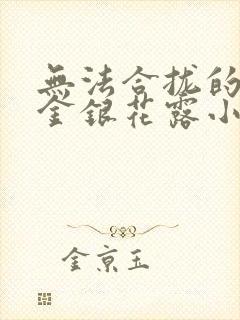 無法合拢的
金銀花露小
金京玉